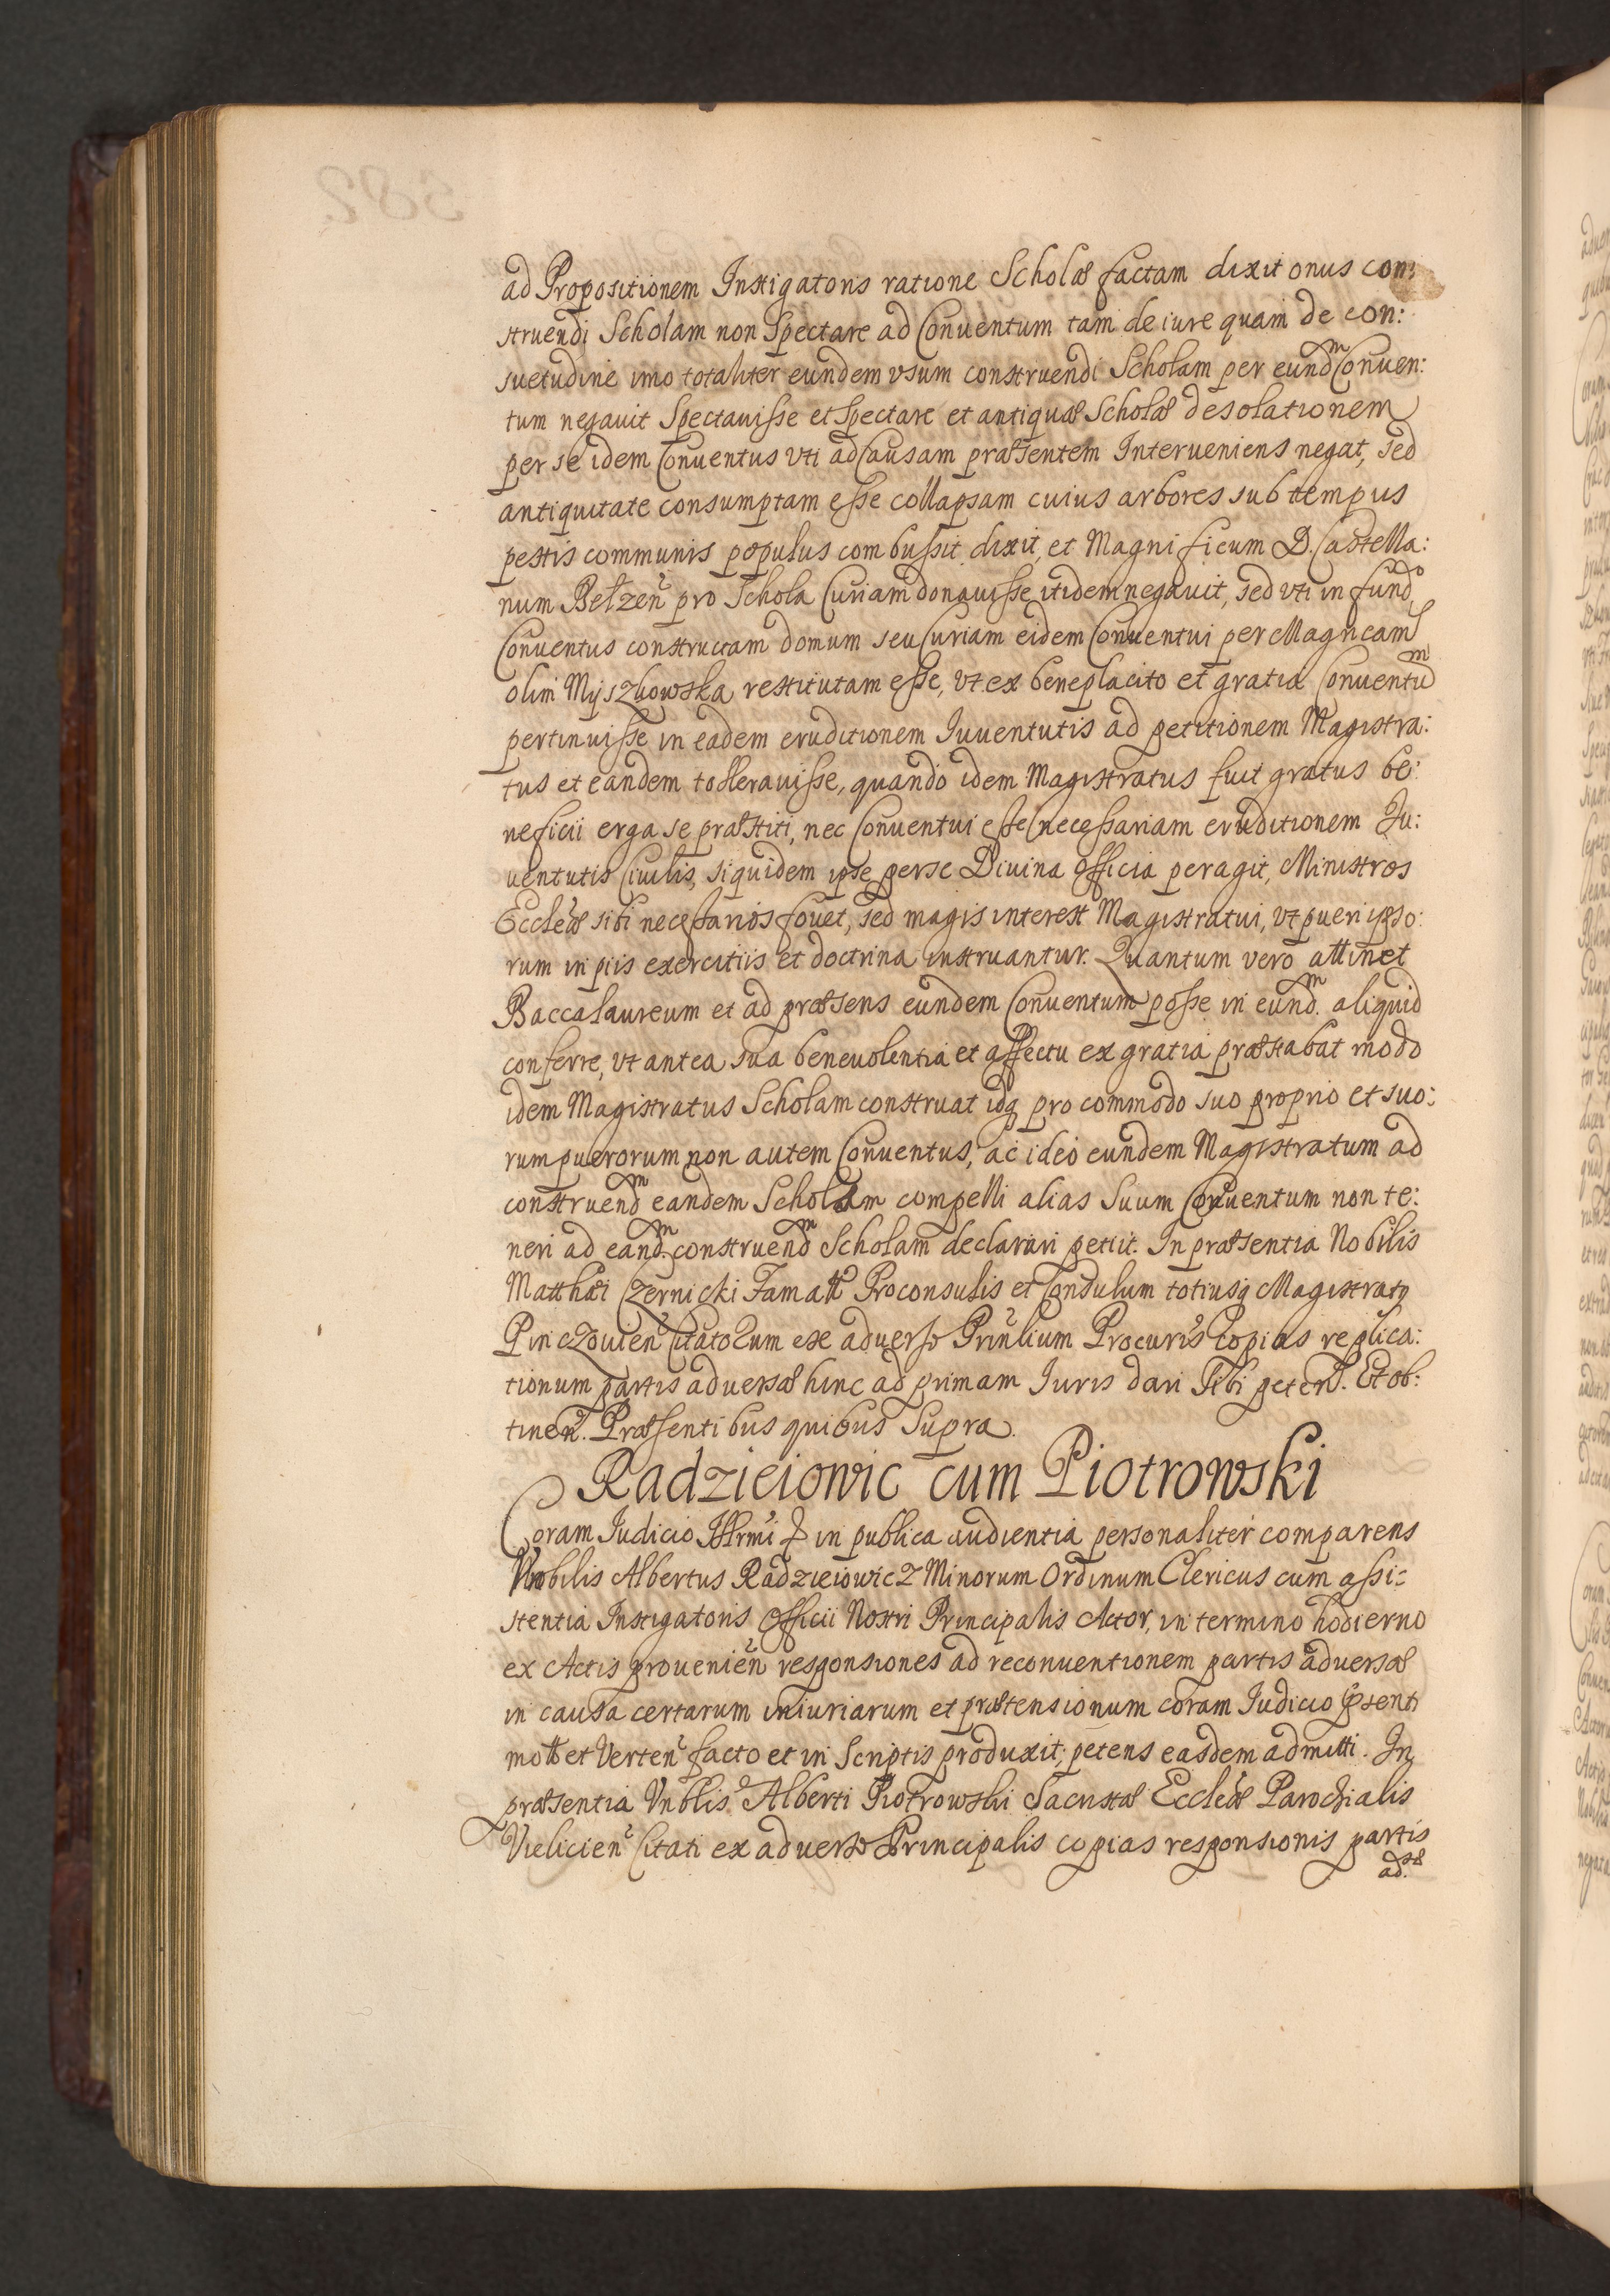 ad Propositionem Instigatoris ratione Scholæ factam dixit onus con:
struendi Scholam non Spectare ad Conuentum tam de iure quam de con:
suetudine imo totaliter eundem vsum construendi Scholam per eund͏ᵐ Conuen:
tum negauit Spectauisse et Spectare et antiquæ Scholæ desolationem
per se idem Conuentus vti ad Causam præsentem Interueniens negat, sed
antiquitate consumptam esse collapsam cuius arbores sub tempus
pestis communis populus combussit dixit, et Magnificum D. Castella:
num Bełzen pro Schola Curiam donauisse itidem negauit, sed vti in fund
Conuentus constructam domum seu Curiam eidem Conuentui per Magncam
olim Myszkowska restitutam esse, vt ex beneplacito et gratia Conuentu͏ᵐ
pertinuisse in eadem eruditionem Iuuentutis ad petitionem Magistra:
tus et eandem tollerauisse, quando idem Magistratus fuit gratus be:
neficii erga se præstiti, nec Conuentui esse necessariam eruditionem Ju:
uentutis Ciuilis, siquidem ipse per se Diuina officia peragit, Ministros
Ecclæ sibi necessarios fouet, sed magis interest Magistratui, vt pueri ipso:
rum in piis exercitiis et doctrina instruantur. Quantum vero attinet
Baccalaureum et ad præsens eundem Conuentum posse in eundᵐ. aliquid
conferre, vt antea sua beneuolentia et affectu ex gratia præstabat modo
idem Magistratus Scholam construat idq pro commodo suo proprio et suo:
rum puerorum non autem Conuentus, ac ideo eundem Magistratum ad
construendᵐ eandem Scholam compelli alias Suum Conuentum non te:
neri ad eandᵐ. construendᵐ Scholam declarari petiit. In præsentia Nobilis
Matthæi Czernicki Famatt Proconsulis et Consulum totiusq Magistratq
Pinczouien Citatorum ex aduerso Prinlium Procuris Copias replica:
tionum partis aduersæ hinc ad primam Iuris dari Sibi peten. Et ob:
tinen. Præsentibus quibus Supra.
Radzieiowic cum Piotrowski
Coram Iudicio Illrmi &c in publica audientia personaliter comparens
Nobilis Albertus Radzieiowicz Minorum Ordinum Clericus cum assi:
stentia Instigatoris Officii Nostri Principalis Actor, in termino hodierno
ex Actis prouenien responsiones ad reconuentionem partis aduersæ
in causa certarum iniuriarum et prætensionum coram Iudicio psenti
mott et Verten facto et in Scriptis produxit, petens easdem admitti. In
præsentia Vnblis Alberti Piotrowski Sacristæ Ecclæ Parochialis
Vielicien Citati ex aduerso Principalis copias responsionis partis
ad.sæ